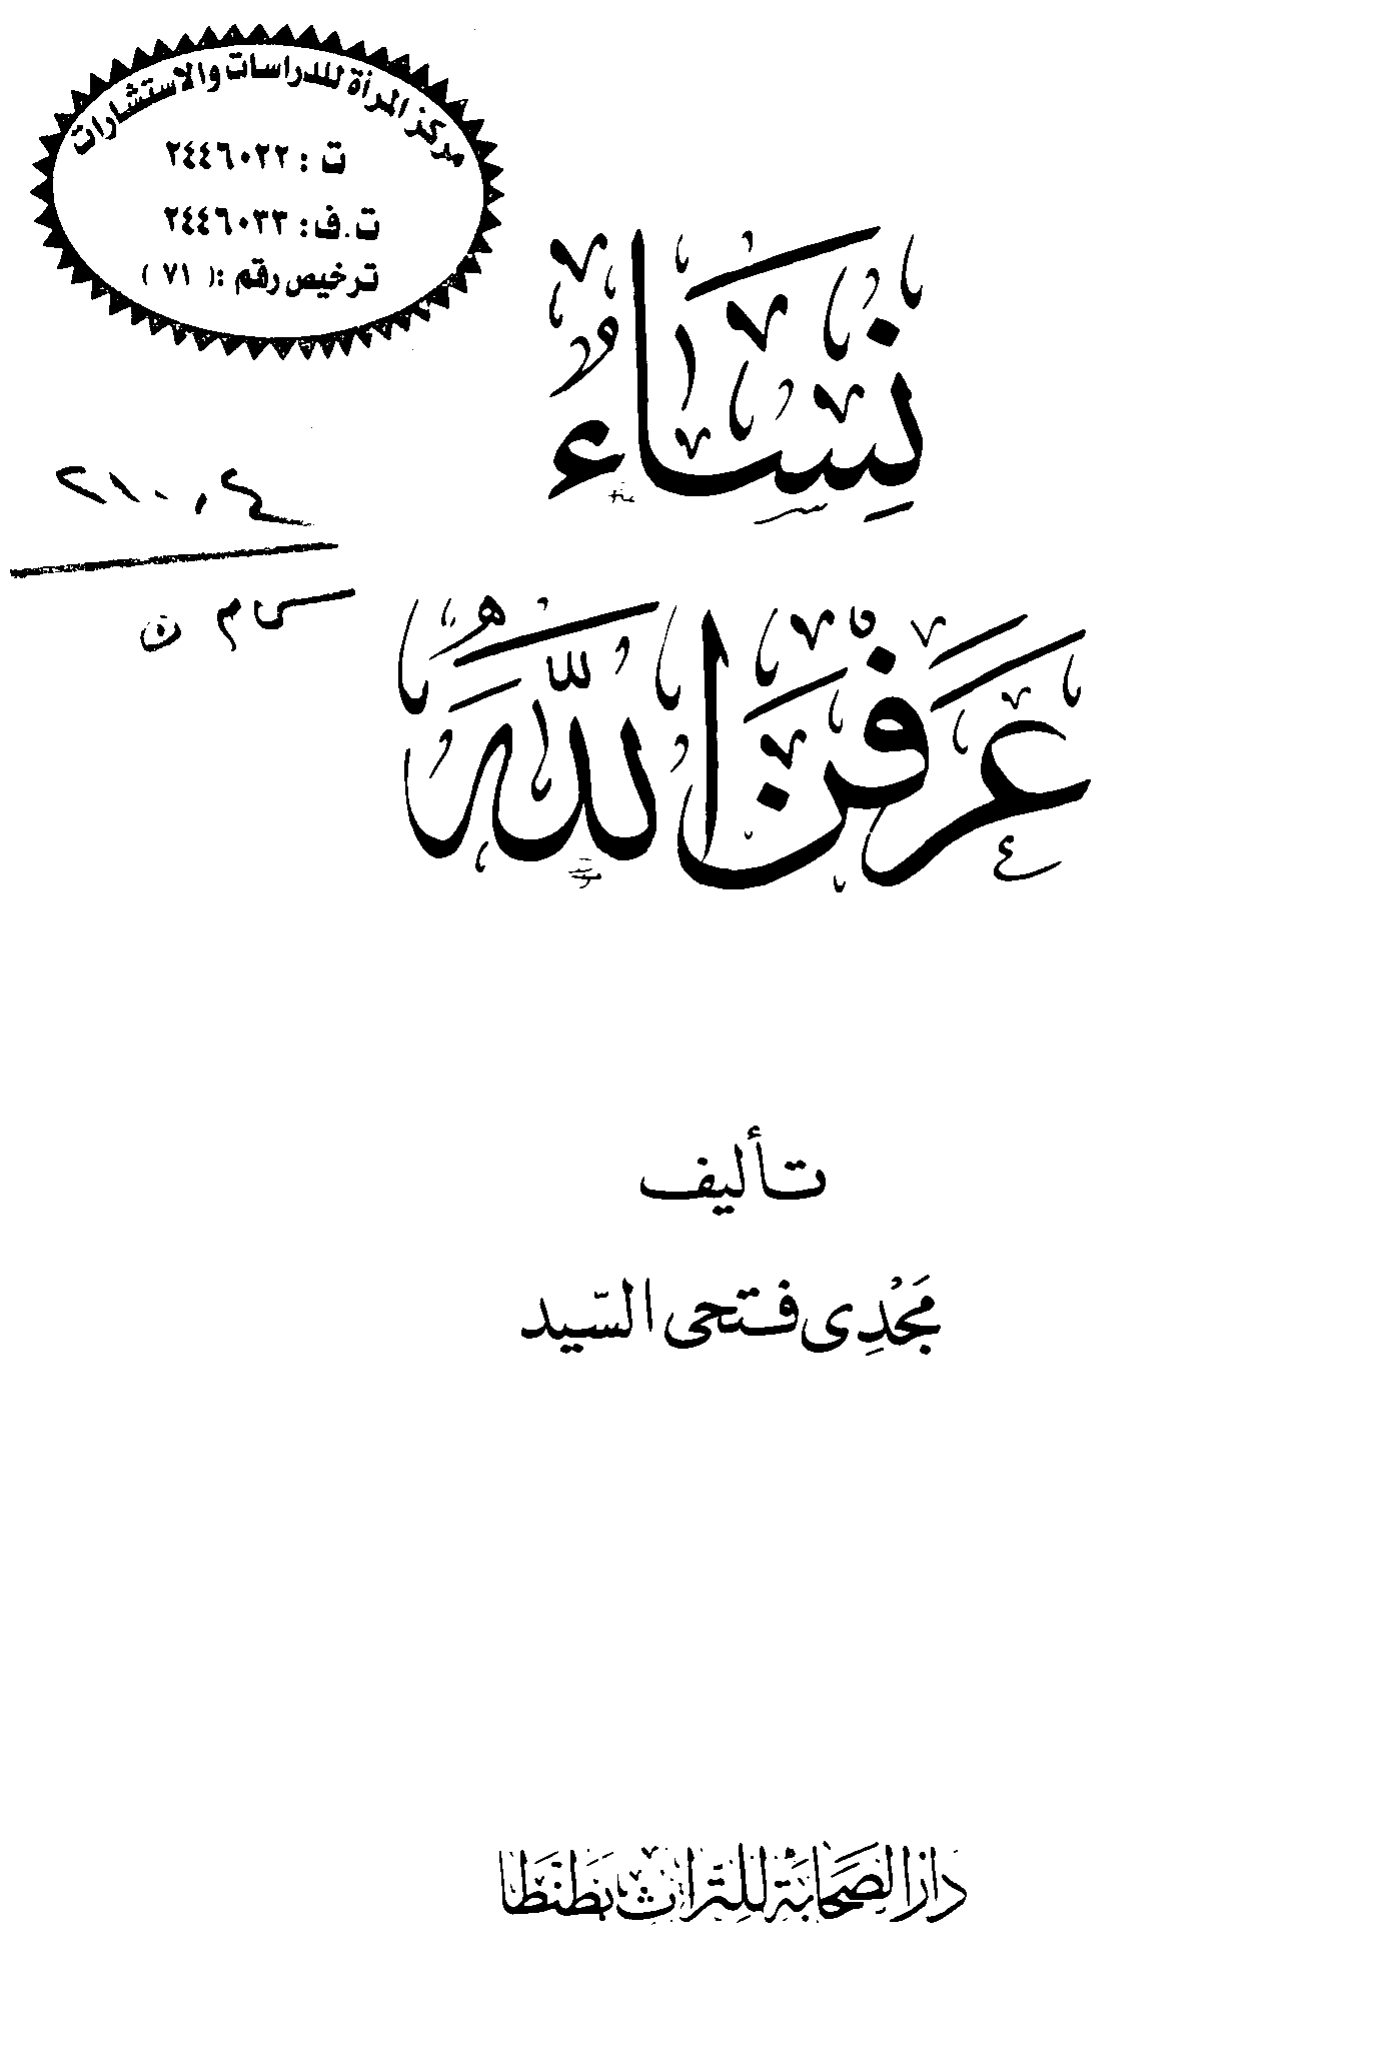 مركز المرأة للدراسات والاستشارات
ت : ٢٤٤٦٠٢٢
ت.ف: ٢٤٤٦٠٣٣
ترخيص رقم :( ٧١ )
٢١٠,٤
نِسَاءُ
عَرَفْنَ اللَّهَ
تأليف
مَجْدِى فتحى السّيد
دَارُ الصَّحَابَةِ لِلتُّرَاثِ بطَنْطَا